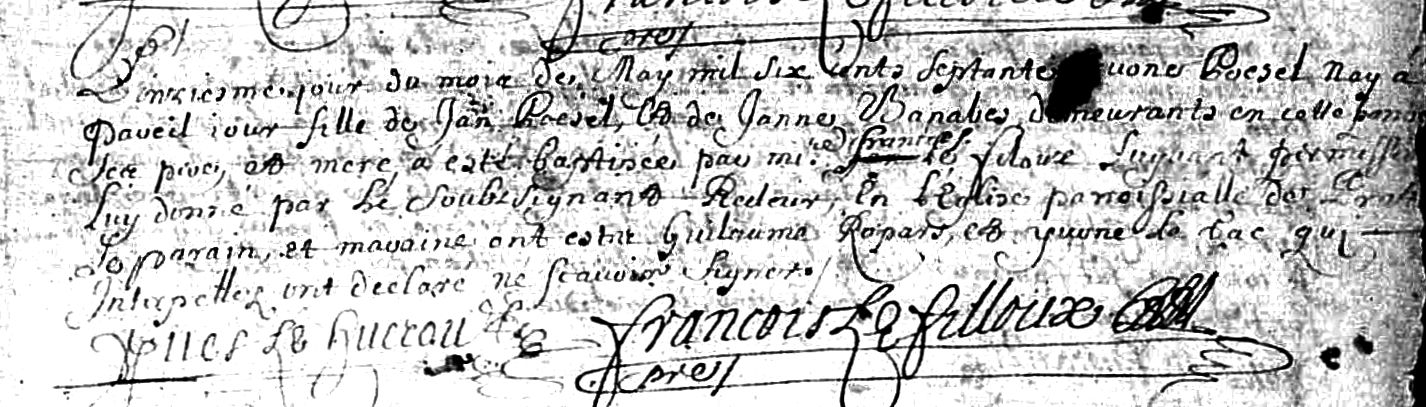 jour du mois de May mil six cents septante yuone Roesel Nay a
paveil iour fille de Jan Roesel, et de Janne Banabes demeurants en cette
Ses pere, et mere, a esté baptisée par mi. francois le filoux luy permission
luy donné par Le Soubsignant Recteur, En l'Eglise paroissialle de
Le parain, et maraine ont estté Guilaume Ropars, et yuone le Lac qui
Interpellez ont declaré ne scauoir signer
yues Le Hucrau francois Le filloux
pres